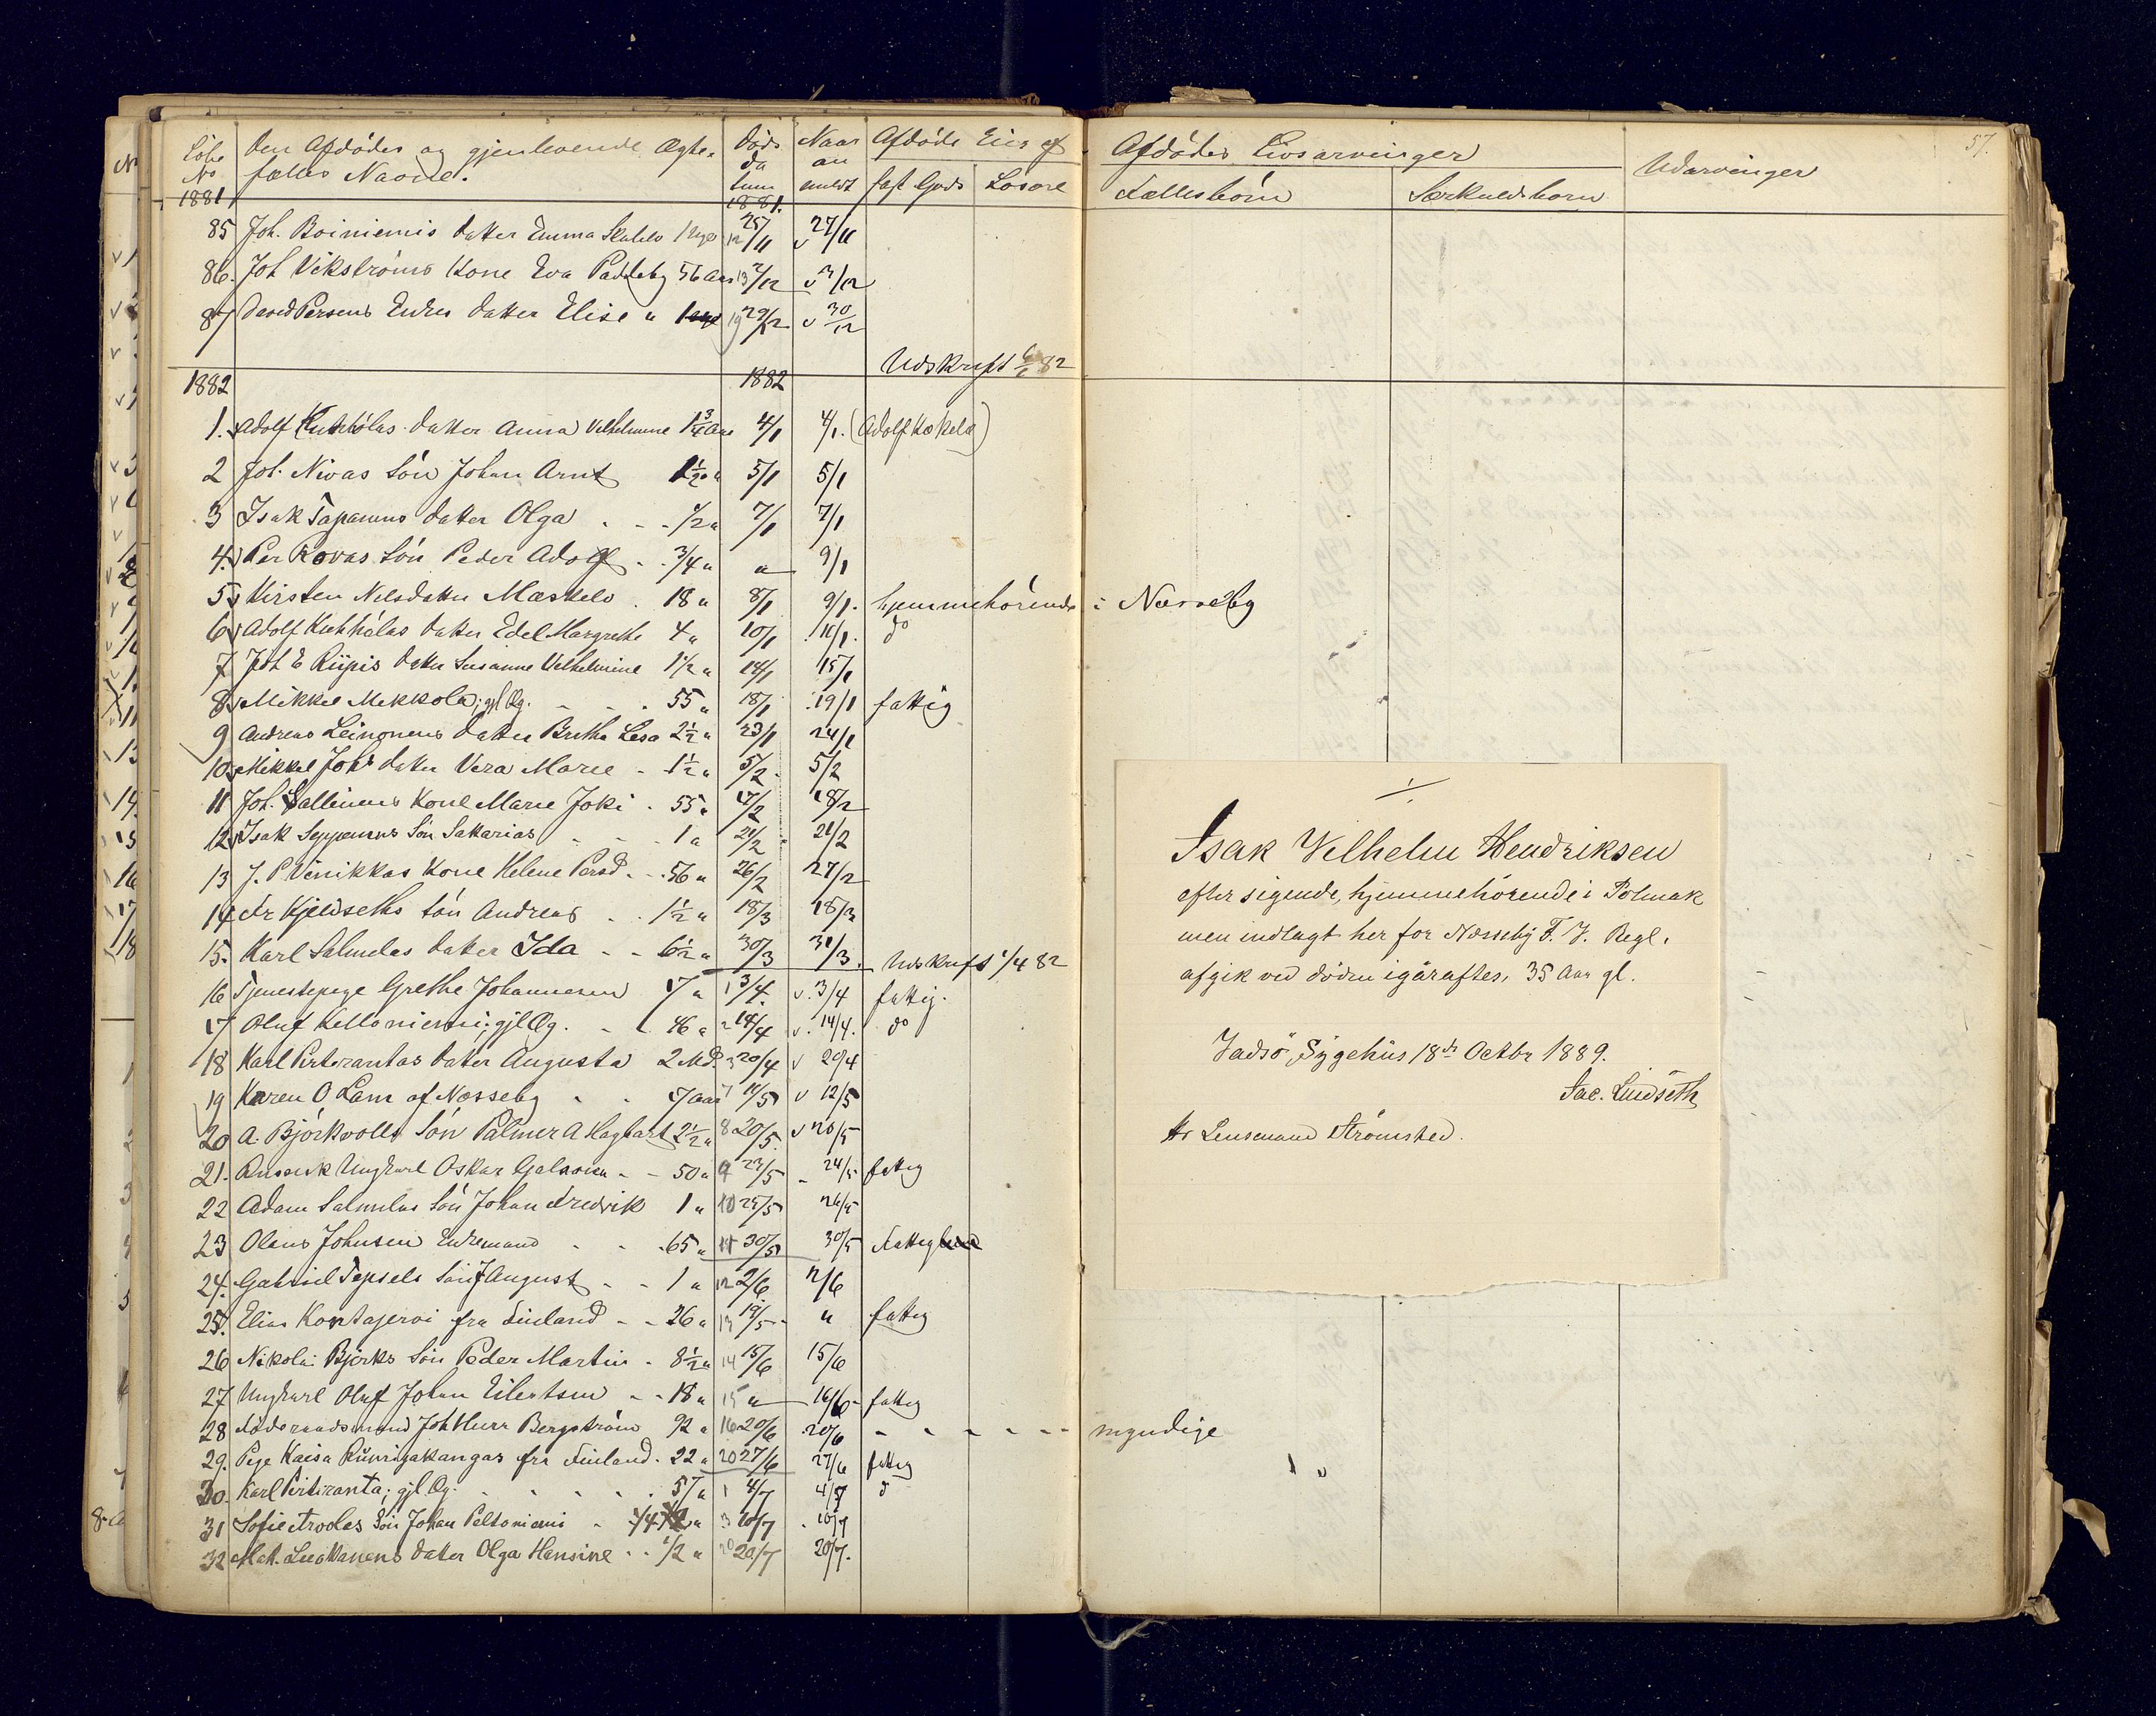 Löbe No Den Afdödes og gjenlevende Ægte- Döds Naar Afdöde Eier af Afdödes Livsarvinger Udarvinger 57.
fælles Navne. da tum an meldt fast Gods Lösöre Fællesbörn Særkuldsbørn
1881 1881.
85 Joh. Boiniemis Datter Emma 1 Uge 12 25/11 v 27/11
86. Joh Vikströms Kone Eva Paddeby 56 Aar 13 2/12 v 3/12
87 David Persens Datter Elise " 19 29/12 v 30/12
Udskrift 82
1882 1882
1. Adolf Datter Anna Vilhelmine 1 3/4 Aar 4/1 4/1. (Adolf Kokela)
2 Joh. Nivas Sön Johan Arnt 1 1/2 " 5/1 5/1
3 Isak Tapanens Datter Olga - - - 1/2 " 7/1 7/1
4. Per Rovas Sön Peder Adolf - - 3/4 " " 9/1
5 Kirsten Nilsdatter Mæskelv . 18 " 8/1 9/1. hjemmehörende i Næsseby
6 Adolf Kukkolas Datter Edel Margrethe 4 " 10/1 . 10/1. do
7 Joh E Riipis Datter Susanne Vilhelmine 1 1/2 " 14/1 15/1
8 Mikkel Mekkola; gjl Æg. - - . 55 " 18/1 . 19/1 fattig
9 Andreas Leinonens Datter Brethe Lesa 2 1/2 " 23/1 24/1
10 Mikkel Johs Datter Vera Marie - 1 1/2 " 5/2. 5/2
11 Joh. Sallinens Kone Marie Joki . 55 " 17/2 18/2
12 Isak Seppanens Sön Sakarias - - . 1 " 21/2 21/2
13 J. P Vinikkas Kone Helene Persd. - . 56 " 26/2 27/2
14 Ar Kjeldseths Sön Andreas . . 1 1/2 " 18/3 18/3
15. Karl Salmelas Datter Ida - - 6 1/2 " 30/3 31/3. Udskrift 1/4 82
16 Tjenestepige Grethe Johannesen 17 " 1 3/4. v. 3/4 fattig.
17 Oluf Kelloniemi; gjl Æg. - - 46 " 2 14/4 v. 14/4. do
18 Karl Pirtirantas Datter Augusta 2 Md. 3 20/4 v 20/4
19 Karen O Lam af Næsseby - - 17 Aar 7 11/5 v 12/5
20 A. Björkvolls Sön Palmer A Hagbart 2 1/2 " 8 20/5. v 20/5
21. Ungkarl Oskar - - 50 " 9 23/5 - 24/5 fattig
22 Adam Salmelas Sön Johan Fredrik 1 " 10 25/5 26/5
23 Olaus Johnsen Enkemand - - . 65 " 11 30/5 30/5 Fattig
24. Gabriel Tepsels Sön J August - - 1 " 12 2/6 2/6
25. Elias Kontajervi fra Finland - - 26 " 13 19/5 - " fattig
26 Nikolai Björks Sön Peder Martin . 8 1/2 " 14 15/6 15/6
27 Ungkarl Oluf Johan Eilertsen - - 18 " 15 " 16/6 - fattig
28 Föderaadsmand Joh Bergström 92 " 16 20/6 . 20/6 - - - - - - myndige
29. Pige Kaisa fra Finland. 22 " 20 27/6 27/6 fattig
30. Karl Pirtiranta; gjl Æg. . . . . 57 " 1 4/7 4/7 do
31 Sofie Sön Johan Peltoniemi - 1/4 " 3 10/7 - 10/7
32 Datter Olga Hansine - . 1/2 " 20 20/7 20/7.
Isak Vilhelm Hendriksen
efter sigende, hjemmehörende i Polmak
men indlagt her for Næsseby F. V. Regl.
afgik ved döden igåraftes, 35 Aar gl.
Vadsö, Sygehus 18de Octbr 1889.
Jac. Lindseth
Hr Lensmand Strömsted.